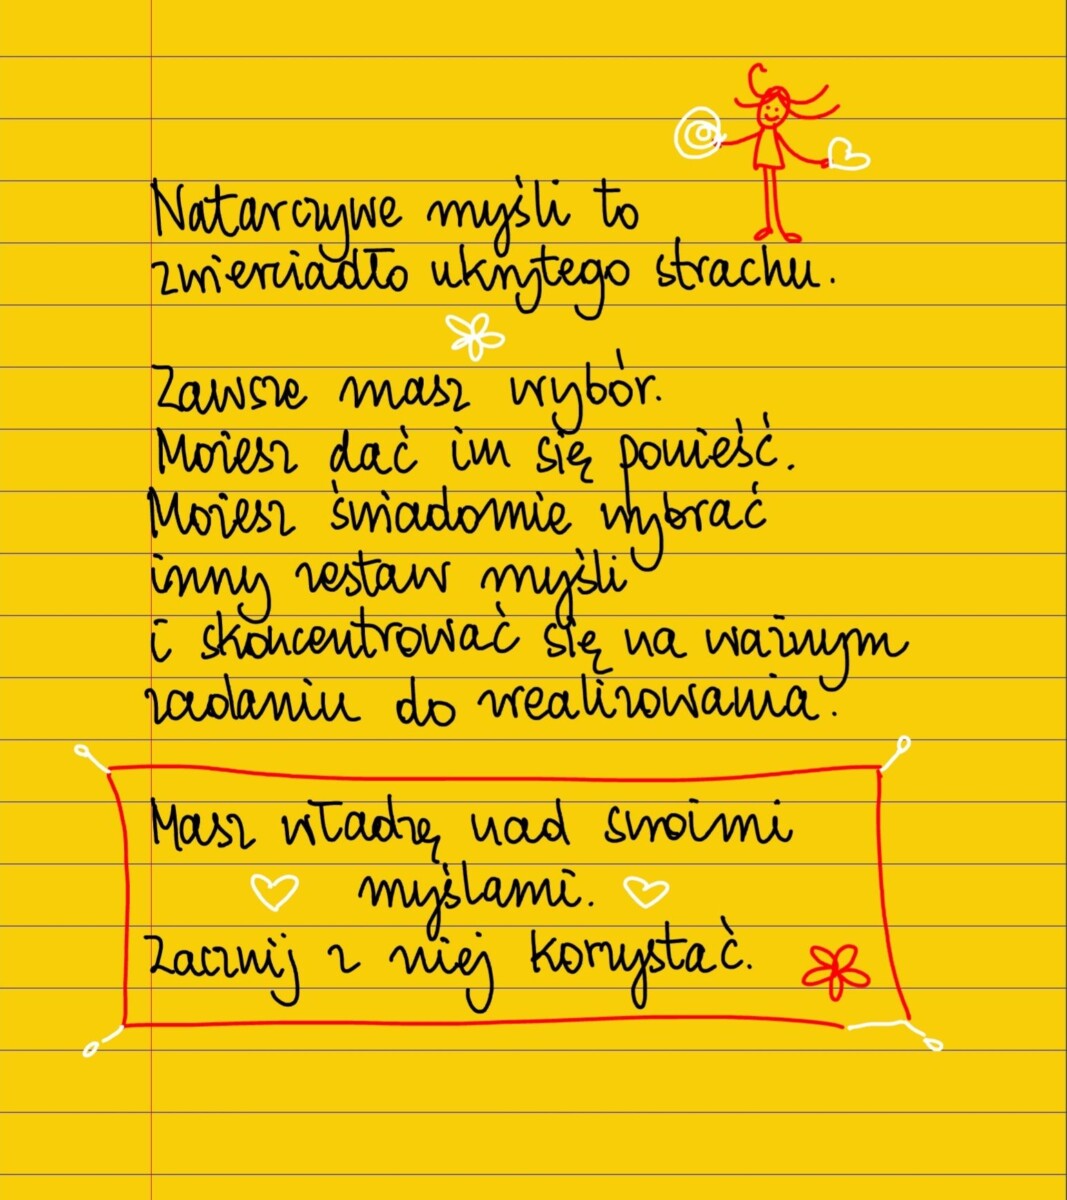 Natarczywe myśli to
zwierciadło ukrytego strachu.
Zawsze masz wybór.
Możesz dać im się ponieść.
Możesz świadomie wybrać
inny zestaw myśli
i skoncentrować się na ważnym
zadaniu do zrealizowania.
Masz władzę nad swoimi
myślami.
Zacznij z niej korzystać.